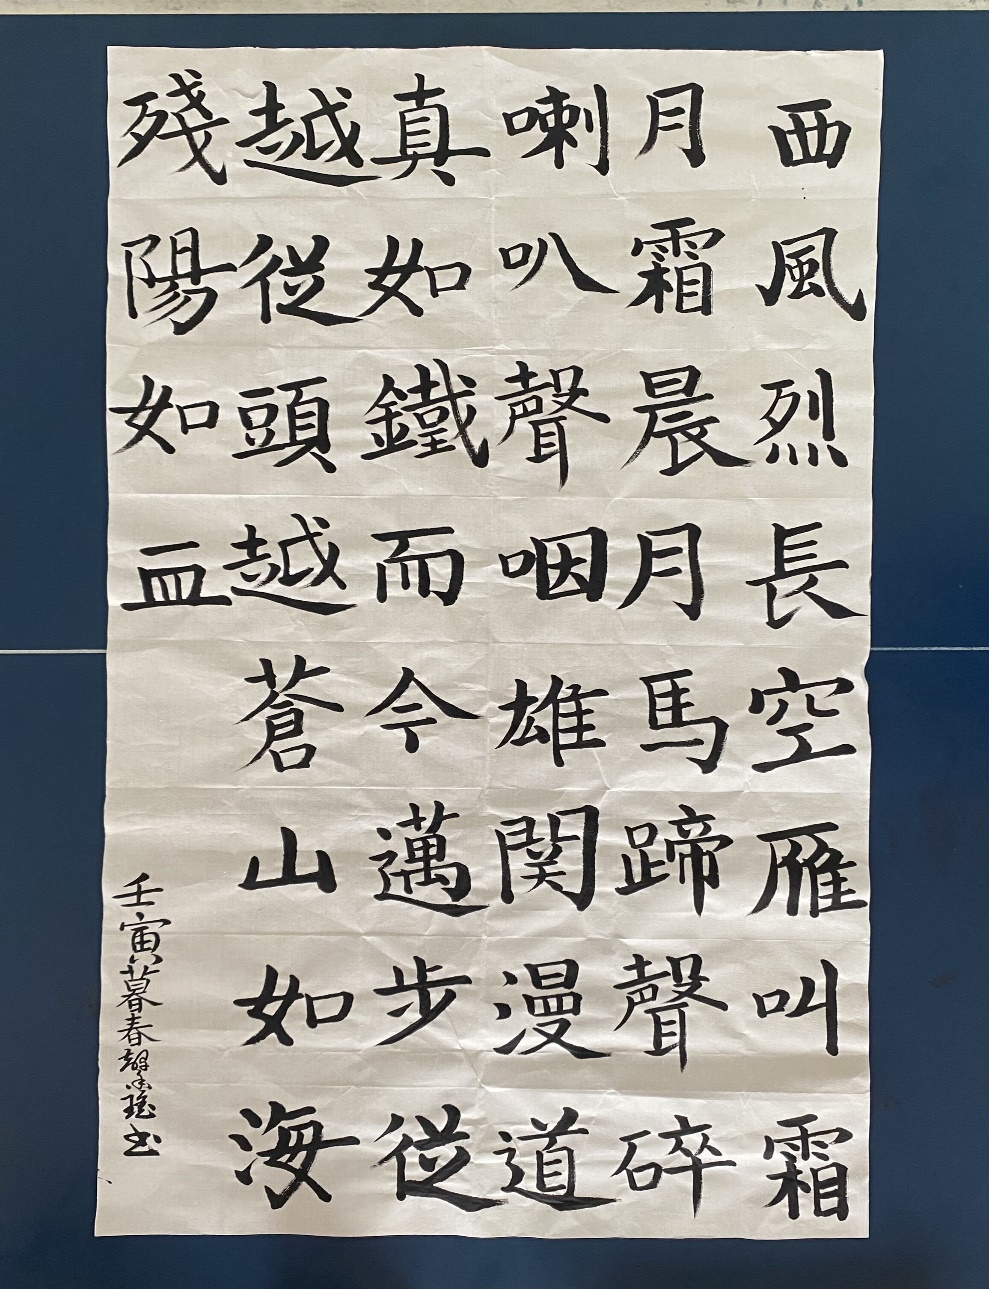 西風烈長空雁叫霜
月霜晨月馬蹄聲碎
喇叭聲咽雄関漫道
真如鐵而今邁步従
越従頭越蒼山如海
殘陽如血
壬寅暮春瑤书